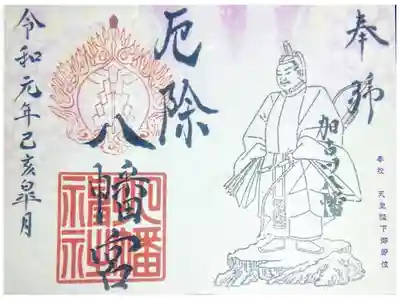 奉拜
奉祝 天皇陛下御即位
加古川八幡
厄除
八幡宮
八幡
神社
令和元年己亥皐月